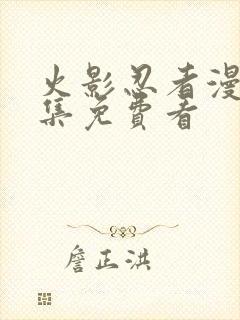 火影忍者漫
集免费看
詹正洪